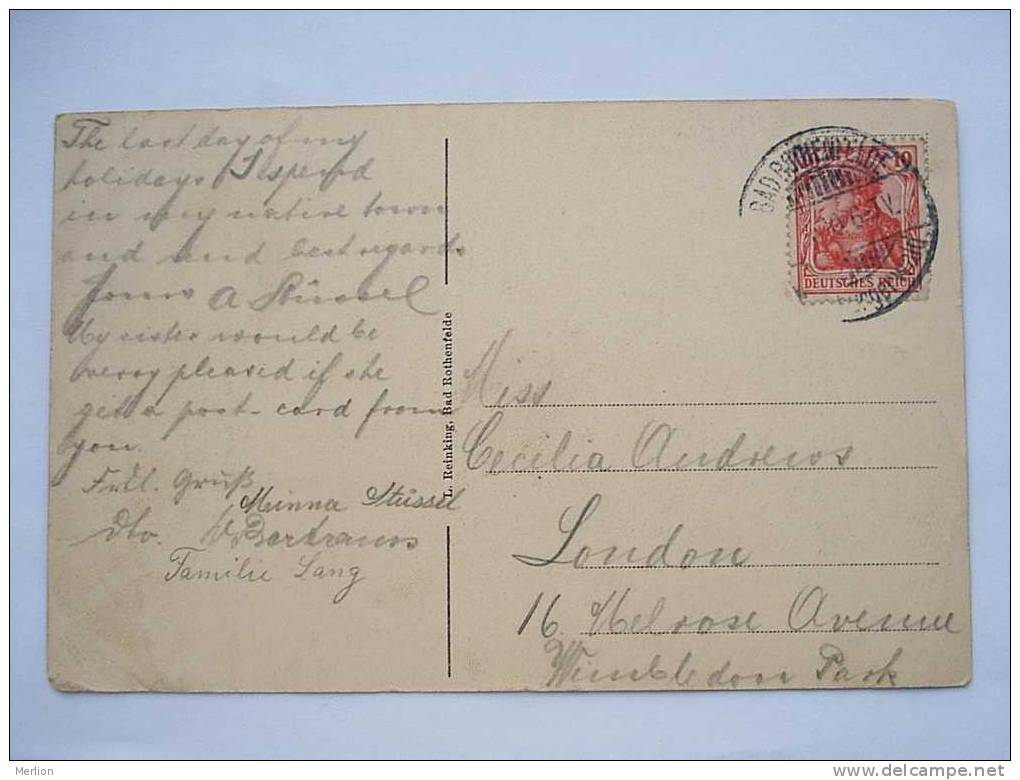 The last day of my
holidays I spend
in my native town
and and best regards
from A Stüssel
My sister would be
verry pleased if she
gets a post-card from
you.
Frdl. Gruß
Minna Stüssel
dto. Bertrams
Familie Lang
L. Reinking, Bad Rothenfelde
BAD ROTHENFELDE
10
DEUTSCHES REICH
Miss
Cecilia Andrews
London
16. Melrose Avenue
Wimbledon Park
Merlion
delcampe.net